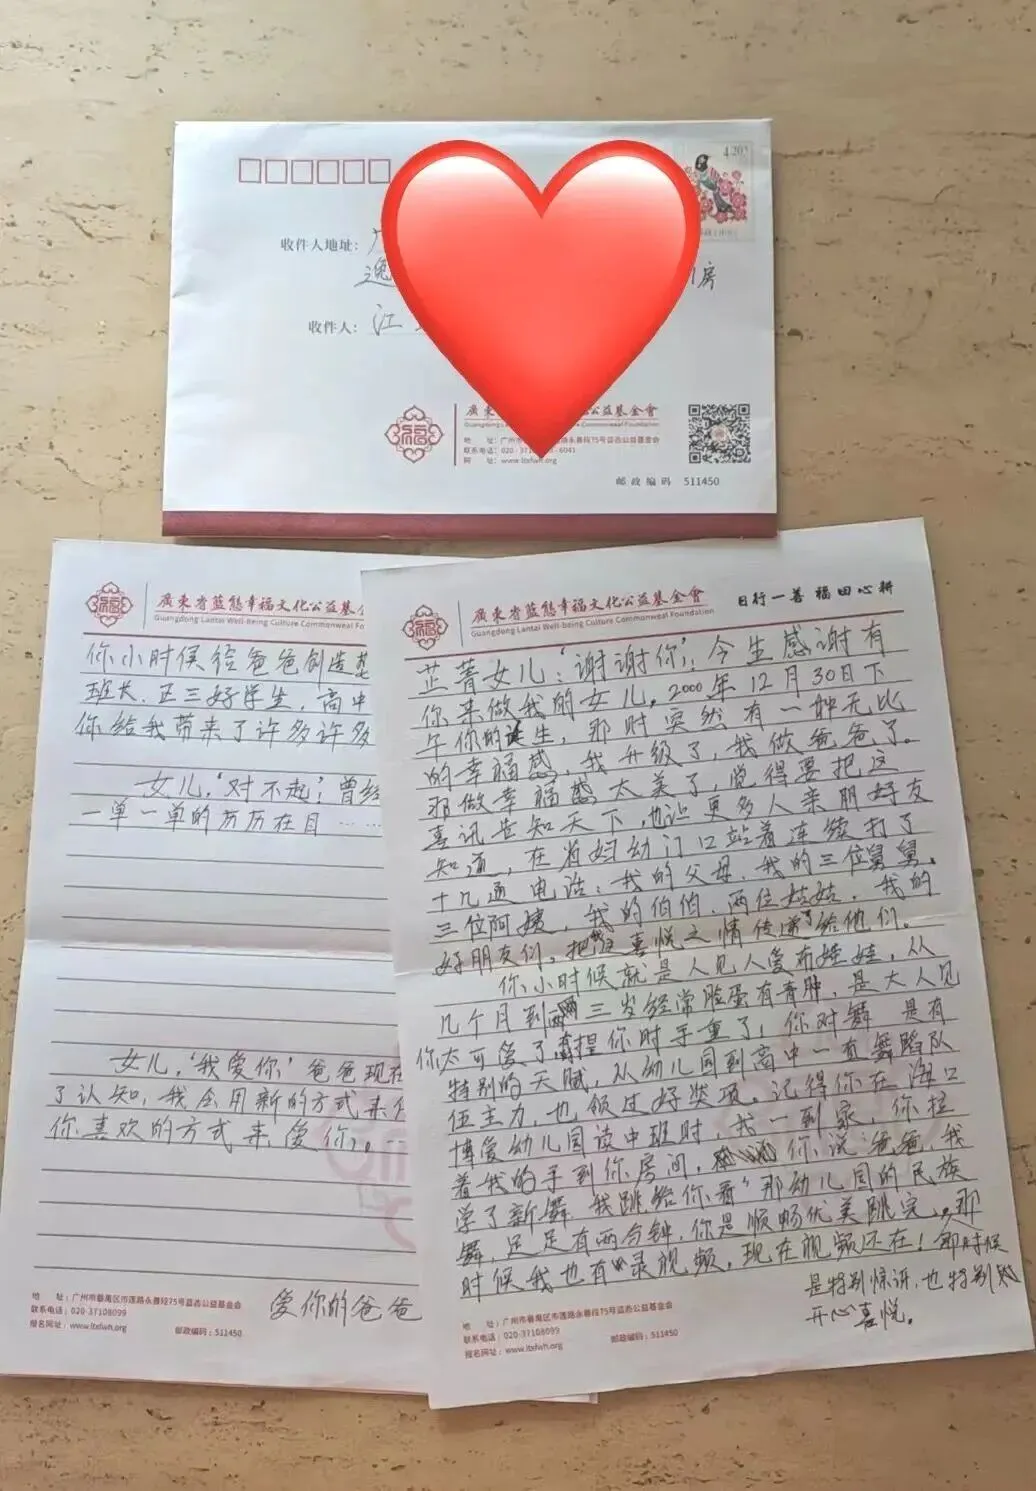 4.20元
收件人地址：广
逸
房
收件人：江
福
廣東
公益基金會
Guangdong Lantai Well-being Culture Commonweal Foundation
地 址：广州市番禺区市莲路永善段75号蓝态公益基金会
联系电话：020-371
-6041
网 址：www.ltxlwh.org
邮政编码 511450
福
廣東省蓝態幸福文化公益基
Guangdong Lantai Well-being Culture Commonweal Fo
你小时候给爸爸创造
班长、三好学生，高中
你给我带来了许多许多
女儿‘对不起’！曾经
一单一单的历历在目……
女儿，‘我爱你’爸爸现在
了认知，我会用新的方式来
你喜欢的方式来爱你。
爱你的爸爸
地 址：广州市番禺区市莲路永善段75号蓝态公益基金会
联系电话：020-37108099
报名网址：www.ltxlwh.org 邮政编码：511450
福
廣東省蓝態幸福文化公益基金會
Guangdong Lantai Well-being Culture Commonweal Foundation
日行一善 福田心耕
芷菁女儿：‘谢谢你’，今生感谢有
你来做我的女儿。2000年12月30日下
午你的诞生，那时突然有一种无比
的幸福感，我升级了，我做爸爸了。
那做幸福感太美了，觉得要把这
喜讯告知天下，也让更多人亲朋好友
知道，在省妇幼门口站着连续打了
十几通电话：我的父母、我的三位舅舅、
三位阿姨，我的伯伯、两位姑姑、我的
好朋友们。把这喜悦之情传递了给他们。
你小时候就是人见人爱布娃娃，从
几个月到两三岁经常脸蛋有青肿，是大人见
你太可爱了捏你时手重了，你对舞 是有
特别的天赋，从幼儿园到高中一直舞蹈队
伍主力，也领过好奖项。记得你在海口
博爱幼儿园读中班时，我一到家，你拉
着我的手到你房间，你说‘爸爸，我
学了新舞 我跳给你看’那幼儿园的民族
舞，足足有两分钟，你是顺畅优美跳完。那
时候我也有录视频，现在视频还在！那时候
是特别惊讶，也特别
开心喜悦。
地 址：广州市番禺区市莲路永善段75号蓝态公益基金会
联系电话：020-37108099
报名网址：www.ltxlwh.org 邮政编码：511450